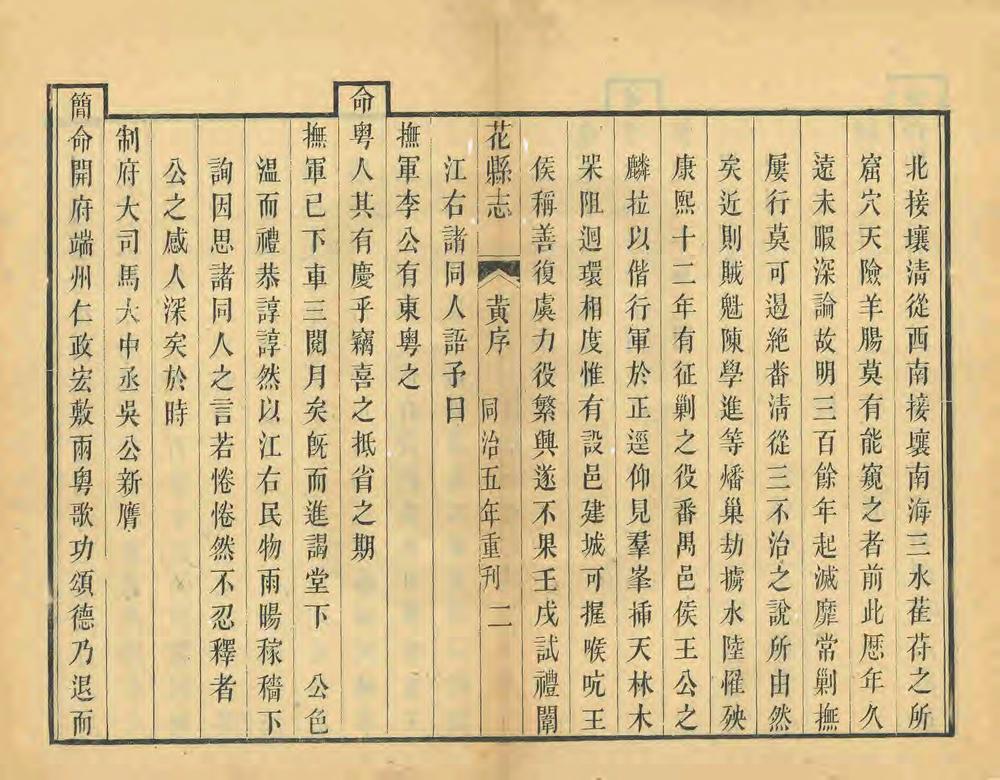 北接壤清從西南接壤南海三水萑苻之所
窟穴天險羊腸莫有能窺之者前此歷年久
遠未暇深論故明三百餘年起滅靡常剿撫
屢行莫可遏絶畨淸從三不治之說所由然
矣近則賊魁陳學進等燔巢劫擄水陸罹殃
康熙十二年有征剿之役番禺邑侯王公之
麟拉以偕行軍於正逕仰見羣峯揷天林木
罙阻迴環相度惟有設邑建城可握喉吭王
侯稱善復虞力役繁興遂不果壬戌試禮闈
花縣志 黃序 同治五年重刊 二
江右諸同人語予曰
撫軍李公有東粵之
命粵人其有慶乎竊喜之抵省之期
撫軍已下車三閱月矣旣而進謁堂下 公色
溫而禮恭諄諄然以江右民物雨暘稼穡下
詢因思諸同人之言若惓惓然不忍釋者
公之感人深矣於時
制府大司馬大中丞吳公新膺
簡命開府端州仁政宏敷兩粵歌功頌德乃退而